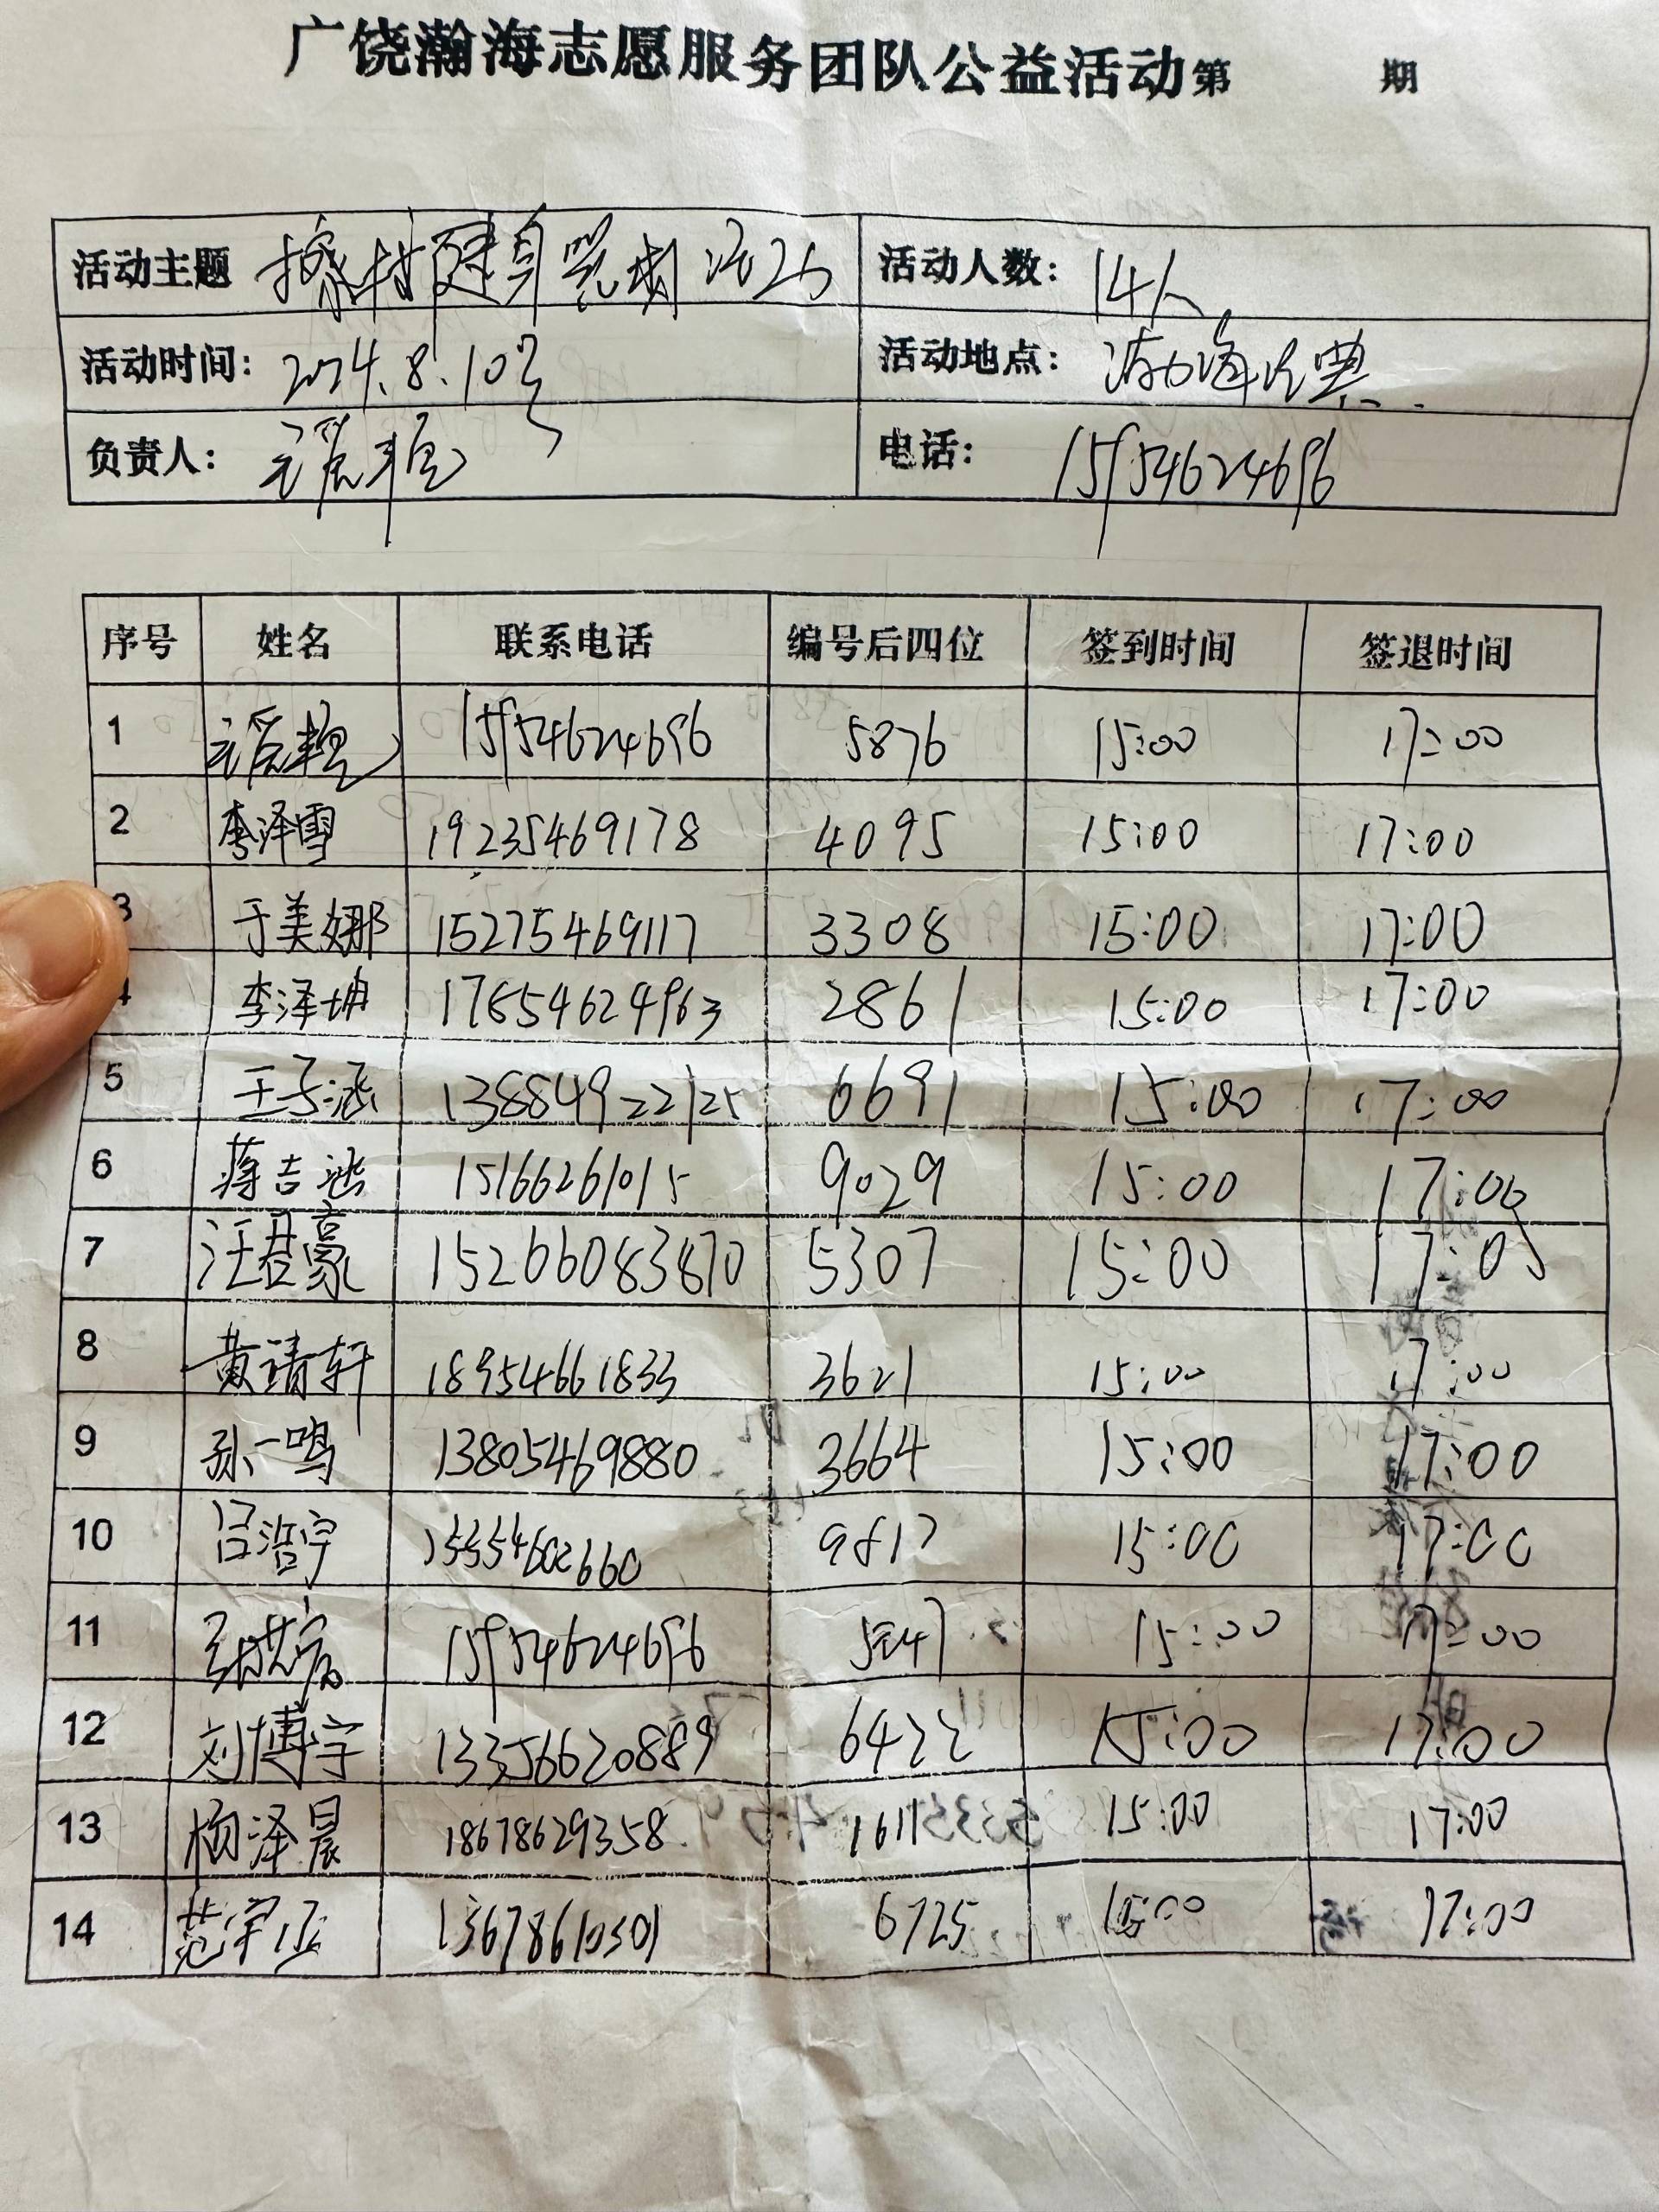 广饶瀚海志愿服务团队公益活动第 期
活动主题 擦 健身器材 活动人数: 14人
活动时间: 2024.8.10号 活动地点: 渤海 典
负责人: 电话: 15954624696
序号 姓名 联系电话 编号后四位 签到时间 签退时间
1 15954624696 5876 15:00 17:00
2 李泽雪 19235469178 4095 15:00 17:00
3 于美娜 15275469117 3308 15:00 17:00
4 李泽坤 17854624963 2861 15:00 17:00
5 王子涵 13884922125 6691 15:00 17:00
6 蒋吉涵 15166261015 9029 15:00 17:00
7 汪君豪 15266083870 5307 15:00 17:00
8 黄靖轩 18954661833 3621 15:00 17:00
9 孙一鸣 13805469880 3664 15:00 17:00
10 吕浩宇 15554602660 9817 15:00 17:00
11 15954624696 15:00 17:00
12 刘博宇 13356620889 6422 15:00 17:00
13 杨泽晨 18678629358 1611 15:00 17:00
14 范宇 6725 15:00 17:00